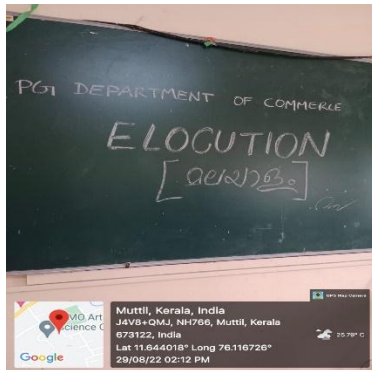 PG DEPARTMENT OF COMMERCE
ELOCUTION
[മലയാളം]
GPS Map Camera
Muttil, Kerala, India
J4V8+QMJ, NH766, Muttil, Kerala
673122, India
Lat 11.644018° Long 76.116726°
29/08/22 02:12 PM
25.79° C
MO Art
Science C
Google